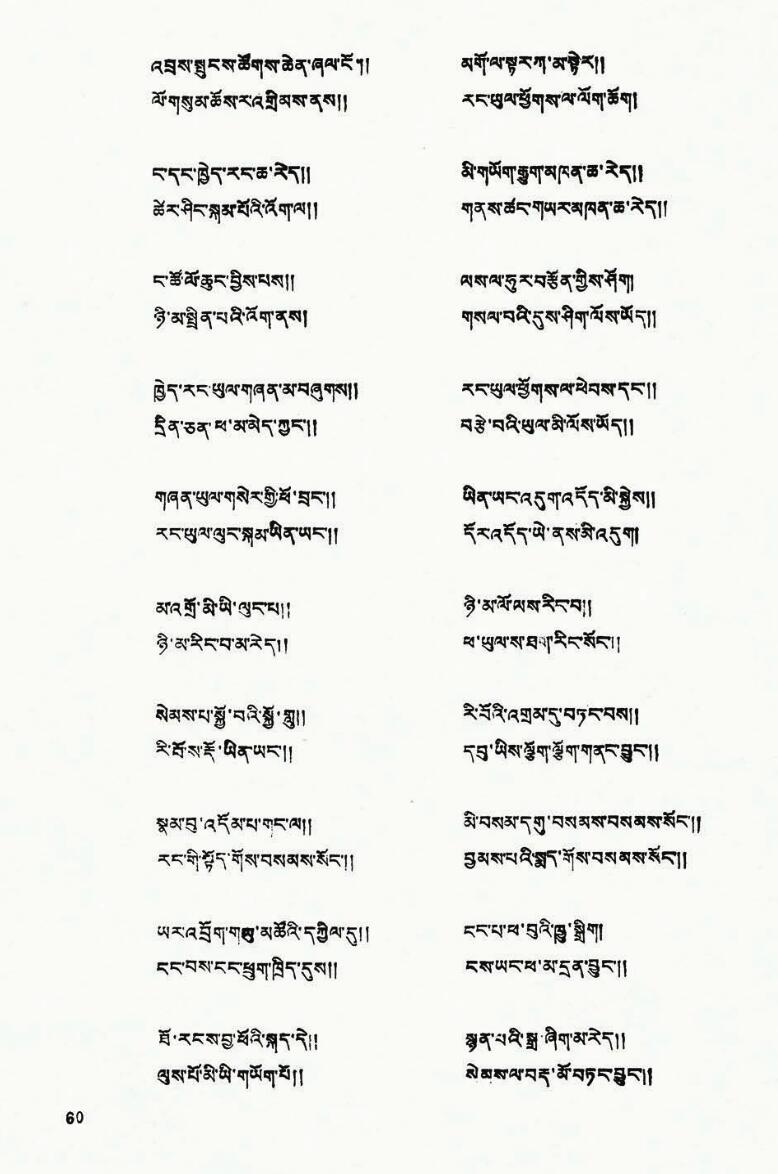 འབྲས་སྤུངས་ཚོགས་ཆེན་ཞལ་ངོ༌།། མགོ་ལ་སྟར་ཀ་མ་སྟེར།།
ལོ་གསུམ་ཆོས་ར་འགྲིམས་ནས།། རང་ཡུལ་ཕྱོགས་ལ་ལོག་ཆོག།
ང་དང་ཁྱེད་རང་ཆ་རེད།། མི་གཡོག་རྒྱུག་མཁན་ཆ་རེད།།
ཚེར་ཤིང་སྐམ་པོའི་འོག་ལ།། གནས་ཚང་གཡར་མཁན་ཆ་རེད།།
ང་ཚོ་ལོ་ཆུང་བྱིས་པས།། ལས་ལ་ཧུར་བརྩོན་གྱིས་ཤོག།
ཉི་མ་སྤྲིན་པའི་འོག་ནས། གསལ་བའི་དུས་ཤིག་ལོས་ཡོད།།
ཁྱེད་རང་ཡུལ་གཞན་མ་བཞུགས།། རང་ཡུལ་ཕྱོགས་ལ་ཕེབས་དང་།།
དྲིན་ཅན་ཕ་མ་མེད་ཀྱང་།། བརྩེ་བའི་ཡུལ་མི་ལོས་ཡོད།།
གཞན་ཡུལ་གསེར་གྱི་ཕོ་བྲང་།། ཡིན་ཡང་འདུག་འདོད་མི་སྐྱེས།།
རང་ཡུལ་ལུང་སྐམ་ཡིན་ཡང་།། དོར་འདོད་ཡེ་ནས་མི་འདུག།
མ་འགྲོ་མི་ཡི་ལུང་པ།། ཉི་མ་ལོ་ལས་རིང་བ།།
ཉི་མ་རིང་བ་མ་རེད།། ཕ་ཡུལ་ས་ཐག་རིང་སོང་།།
སེམས་པ་སྐྱོ་བའི་སྐྱོ་གླུ།། རི་བོའི་འགྲམ་དུ་བཏང་བས།།
རི་བོ་ས་རྡོ་ཡིན་ཡང་།། དབུ་ཡིས་ལྕོག་ལྕོག་གནང་བྱུང་།།
སྣམ་བུ་འདོམ་པ་གང་ལ།། མི་བསམ་དགུ་བསམས་བསམས་སོང་།།
རང་གི་སྟོད་གོས་བསམས་སོང་།། བྱམས་པའི་སྨད་གོས་བསམས་སོང་།།
ཡར་འབྲོག་གཡུ་མཚོའི་དཀྱིལ་དུ།། ངང་པ་ཕ་བུའི་ཁྱུ་སྒྲིག།
ངང་བས་ངང་ཕྲུག་ཁྲིད་དུས།། ངས་ཡང་ཕ་མ་དྲན་བྱུང་།།
ཐོ་རངས་བྱ་ཕོའི་སྐད་དེ།། སྙན་པའི་སྒྲ་ཞིག་མ་རེད།།
ལུས་པོ་མི་ཡི་གཡོག་པོ།། སེམས་ལ་བརྡ་མོ་བཏང་བྱུང་།།
60